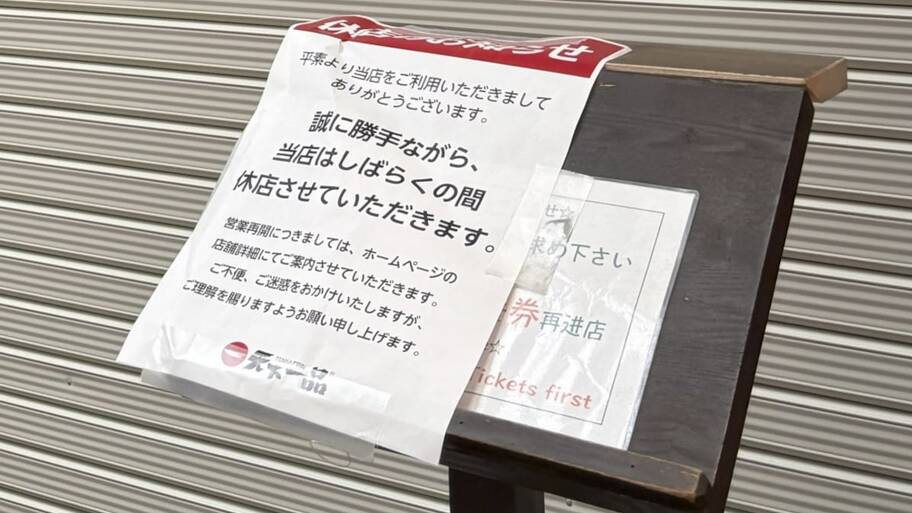 せ
平素より当店をご利用いただきまして
ありがとうございます。
誠に勝手ながら、
当店はしばらくの間
休店させていただきます。
営業再開につきましては、ホームページの
店舗詳細にてご案内させていただきます。
ご不便、ご迷惑をおかけいたしますが、
ご理解を賜りますようお願い申し上げます。
天下一品
せ☆
求め下さい
券再进店
☆
Tickets first